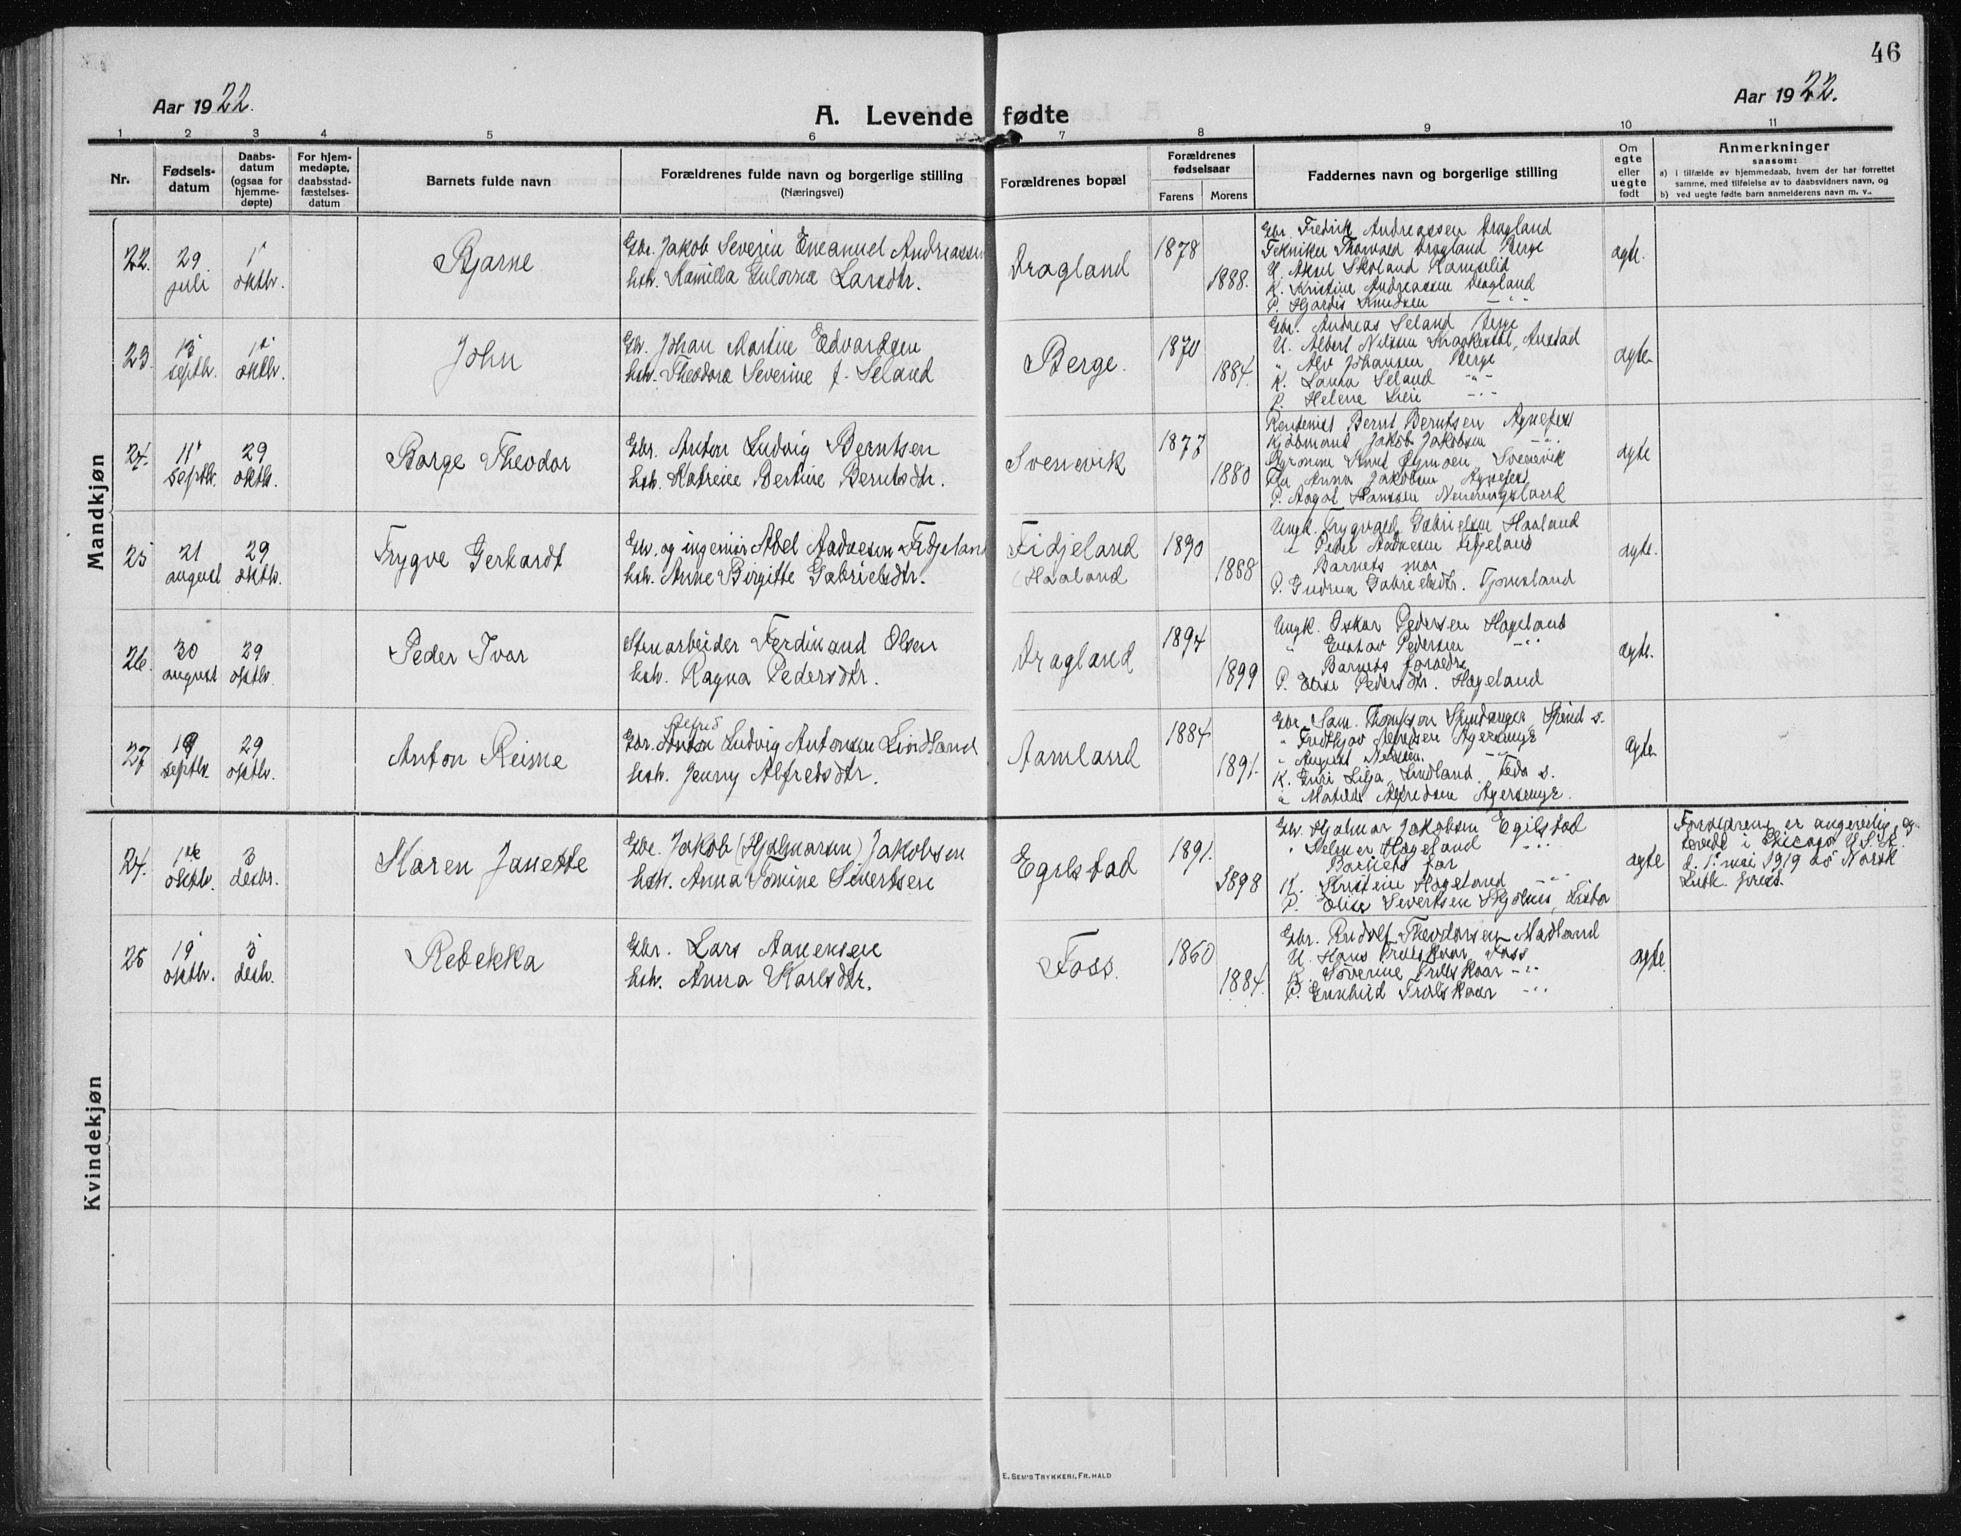 46
Aar 1922.
Aar 1922.
A. Levende fødte
1 2 3 4 5 6 7 8 9 10 11
Nr.
Fødsels-
datum
Daabs-
datum
(ogsaa for
hjemme-
døpte)
For hjem-
medøpte,
daabsstad-
fæstelses-
datum
Barnets fulde navn
Forældrenes fulde navn og borgerlige stilling
(Næringsvei)
Forældrenes bopæl
Forældrenes
fødselsaar
Farens Morens
Faddernes navn og borgerlige stilling
Om
egte
eller
uegte
født
Anmerkninger
saasom:
a) i tilfælde av hjemmedaab, hvem der har forrettet
samme, med tilføielse av to daabsvidners navn, og
b) ved uegte fødte barn anmelderens navn m. v..
Mandkjøn
22.
29
juli
1
oktbr.
Bjarne
Gbr. Jakob Severin Emanuel Andreassen
hstr. Kamilla Gulovna Larsdtr.
Dragland
1878
1888.
Gbr. Fredrik Andreassen Dragland
Tekniker Thorvald Dragland Berge
U. Aksel Skoland Ramselid
K. Kristine Andreassen Dragland
P. Hjørdis Knudsen -"-
ægte.
23.
13
septbr.
1
oktbr.
John
Gbr. Johan Martin Edvardsen
hstr. Theodora Severine f. Seland
Berge.
1870
1884.
Gbr. Andreas Seland Berge
U. Albert Nilsen
" Alv Johansen Berge
K. Laura Seland -"-
P. Helene -"-
ægte
24.
11
septbr.
29
oktbr.
Borge Theodor
Gbr. Anton Ludvig Berntsen
hstr. Katrine Bertine Berntsdtr.
Svenevik
1877
1880
Rentenist Bernt Berntsen Agnefest
Kjøbmand Jakob Jakobsen -"-
Knut Svenevik
Fru Anna Jakobsen Agnefest
P. Aagot Hanssen
ægte
25
21
august
29
oktbr.
Trygve Gerhardt
Gbr. og ingeniør Abel Aadnesen Fidjeland
hstr. Anne Birgitte Gabrielsdtr.
Fidjeland
(Haaland
1890
1888
Ungk. Trygvald Gabrielsen Haaland
" Peder Aadnesen Fidjeland
Barnets mor
P. Gudrun Gabrielsdtr. Tjomsland
ægte.
26.
30
august
29
oktbr.
Peder Ivar
Stenarbeider Ferdinand Olsen
hstr. Ragna Pedersdtr.
Dragland
1894
1899
Ungk. Oskar Pedersen Hageland
" Gustav Pedersen -"-
Barnets forældre
P. Elise Pedersdtr. Hageland
ægte.
27
19
septbr
29
oktbr.
Anton Reime
Alfred
Gbr. Anton Ludvig Antonsen Lindland
hstr. Jenny Alfredsdtr.
Aamland
1884
1891.
Gbr. Sam. Thomsson Spindsanger, Spind s.
" Fridtjov Alfredsen Agersenge
" August Nilssen. -"-
K. Guri Lilja Lindland Feda s.
" Matilde Alfredsen Agersenge.
ægte
Kvindekjøn
24.
1
oktbr.
3
desbr.
Maren Janette
Gbr. Jakob (Hjalmarsen) Jakobsen
hstr. Anna Tomine Sivertsen
Egilstad
1891.
1898
Gbr. Hjalmar Jakobsen Egilstad
" Selmer Hageland -"-
Barnets far
K. Kristine Hageland -"-
P. Elise Sivertsen Skjolnes, Lista
ægte
Forældrene er angivelig
i Chicago U.S.A.
d. 1. mai 1919 av Norsk
Luth. præst.
25
19
oktbr.
3
desbr.
Rebekka
Gbr. Lars Aanensen
hstr. Anna Karlsdtr.
Foss.
1860
1884.
Gbr. Rudolf Theodorsen Nødland
U. Hans Trælskaar Foss
K. Søverine Trælskaar -"-
P. Gunhild Trælskaar -"-
ægte.
E. SEM'S TRYKKERI, FR.HALD